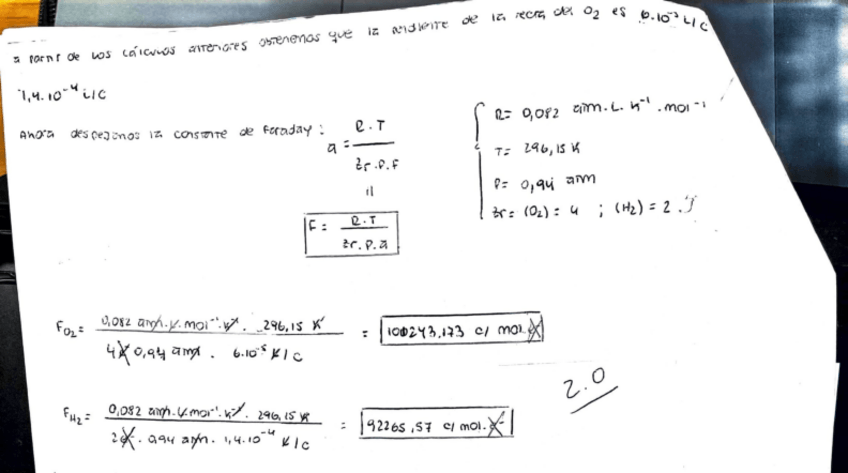 a partir de los cálculos anteriores obtenemos que la pendiente de la recta del O₂ es 6.10⁻⁵ L/C
1,4.10⁻⁴ L/C
Ahora despejamos la constante de Faraday:
a = R.T / zr.P.F
F = R.T / zr.P.a
R = 0,082 atm.L.K⁻¹.mol⁻¹
T = 296,15 K
P = 0,94 atm
zr = (O₂) = 4 ; (H₂) = 2
F O₂ = 0,082 atm.L.mol⁻¹.K⁻¹. 296,15 K / 4 0,94 atm . 6.10⁻⁵ L/C = 100243,173 C/mol
F H₂ = 0,082 atm.L.mol⁻¹.K⁻¹. 296,15 K / 2 . 0,94 atm . 1,4.10⁻⁴ L/C = 92265,57 C/mol.
2.0